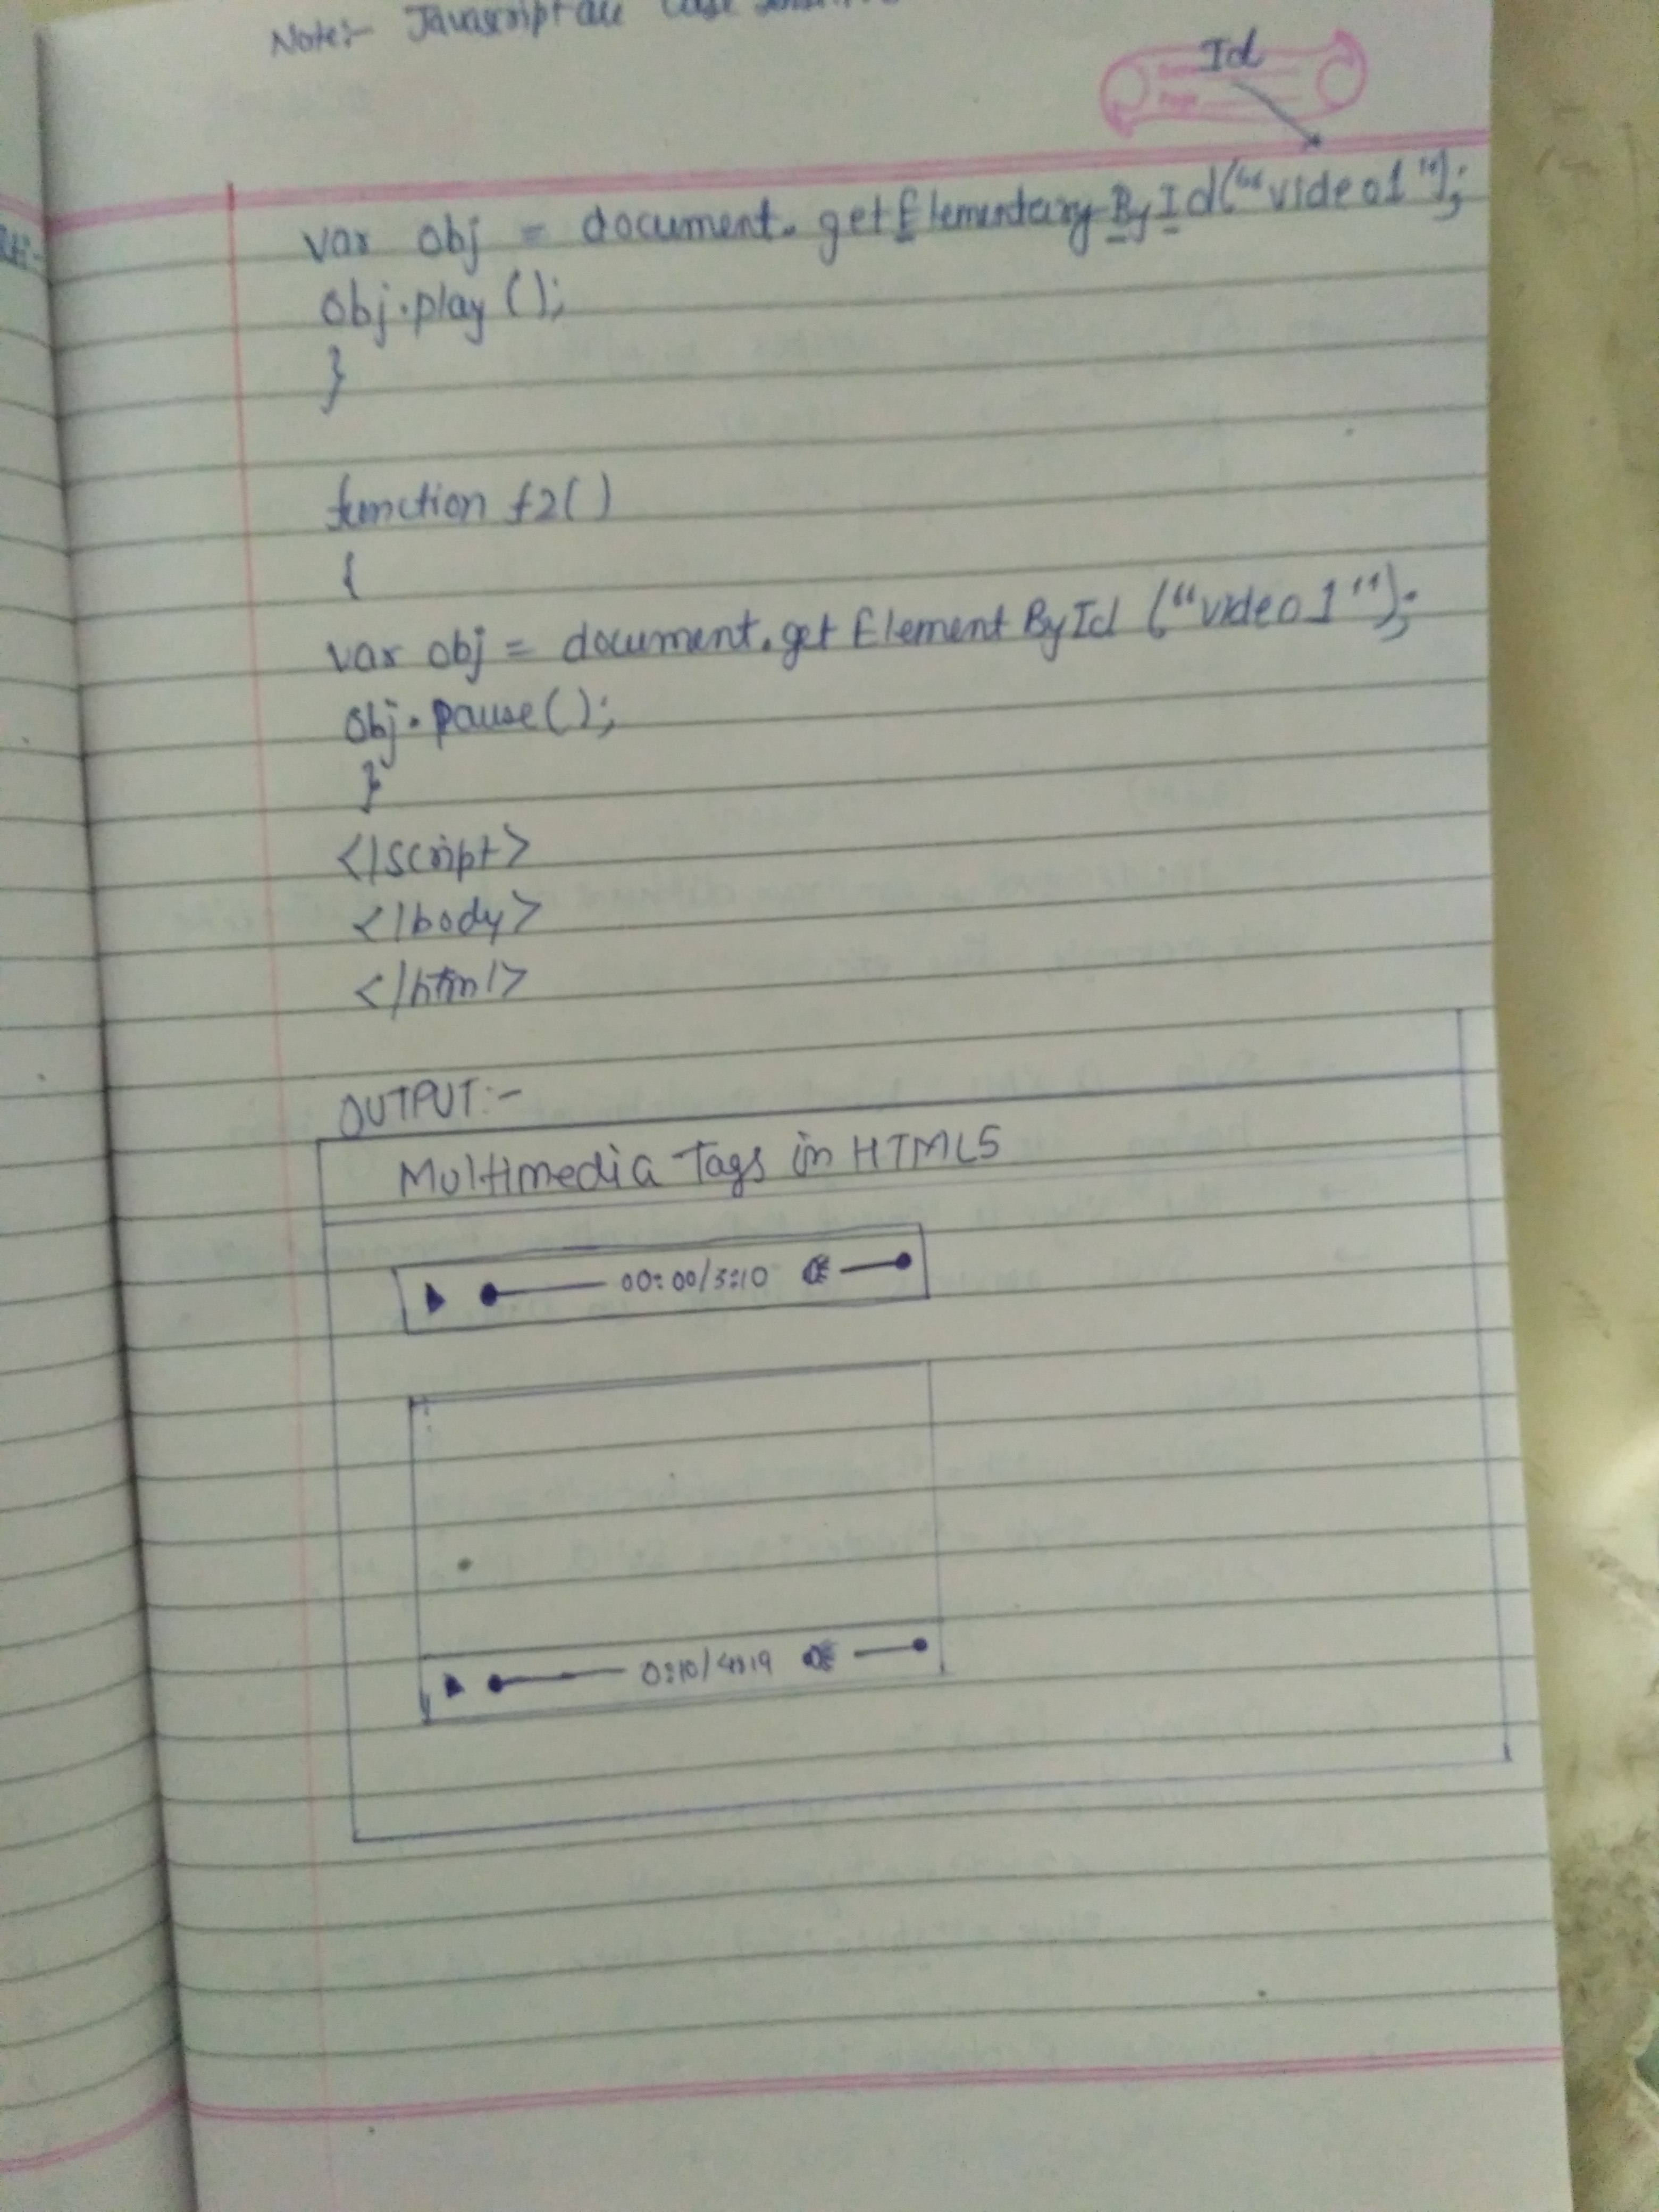 Note:- Javascript are Case
Id
var obj = document.getElementaryById("video1");
obj.play();
}
function f2()
{
var obj = document.getElementById ("video1");
obj.pause();
}
</script>
</body>
</html>
OUTPUT:-
Multimedia Tags in HTML5
00:00/3:10
0:10/4:19